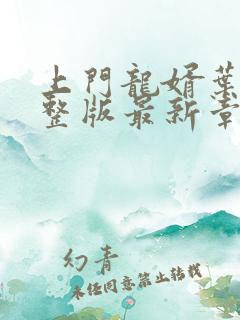 上門龍婿葉
整版最新章
幻青
未经同意禁止转载